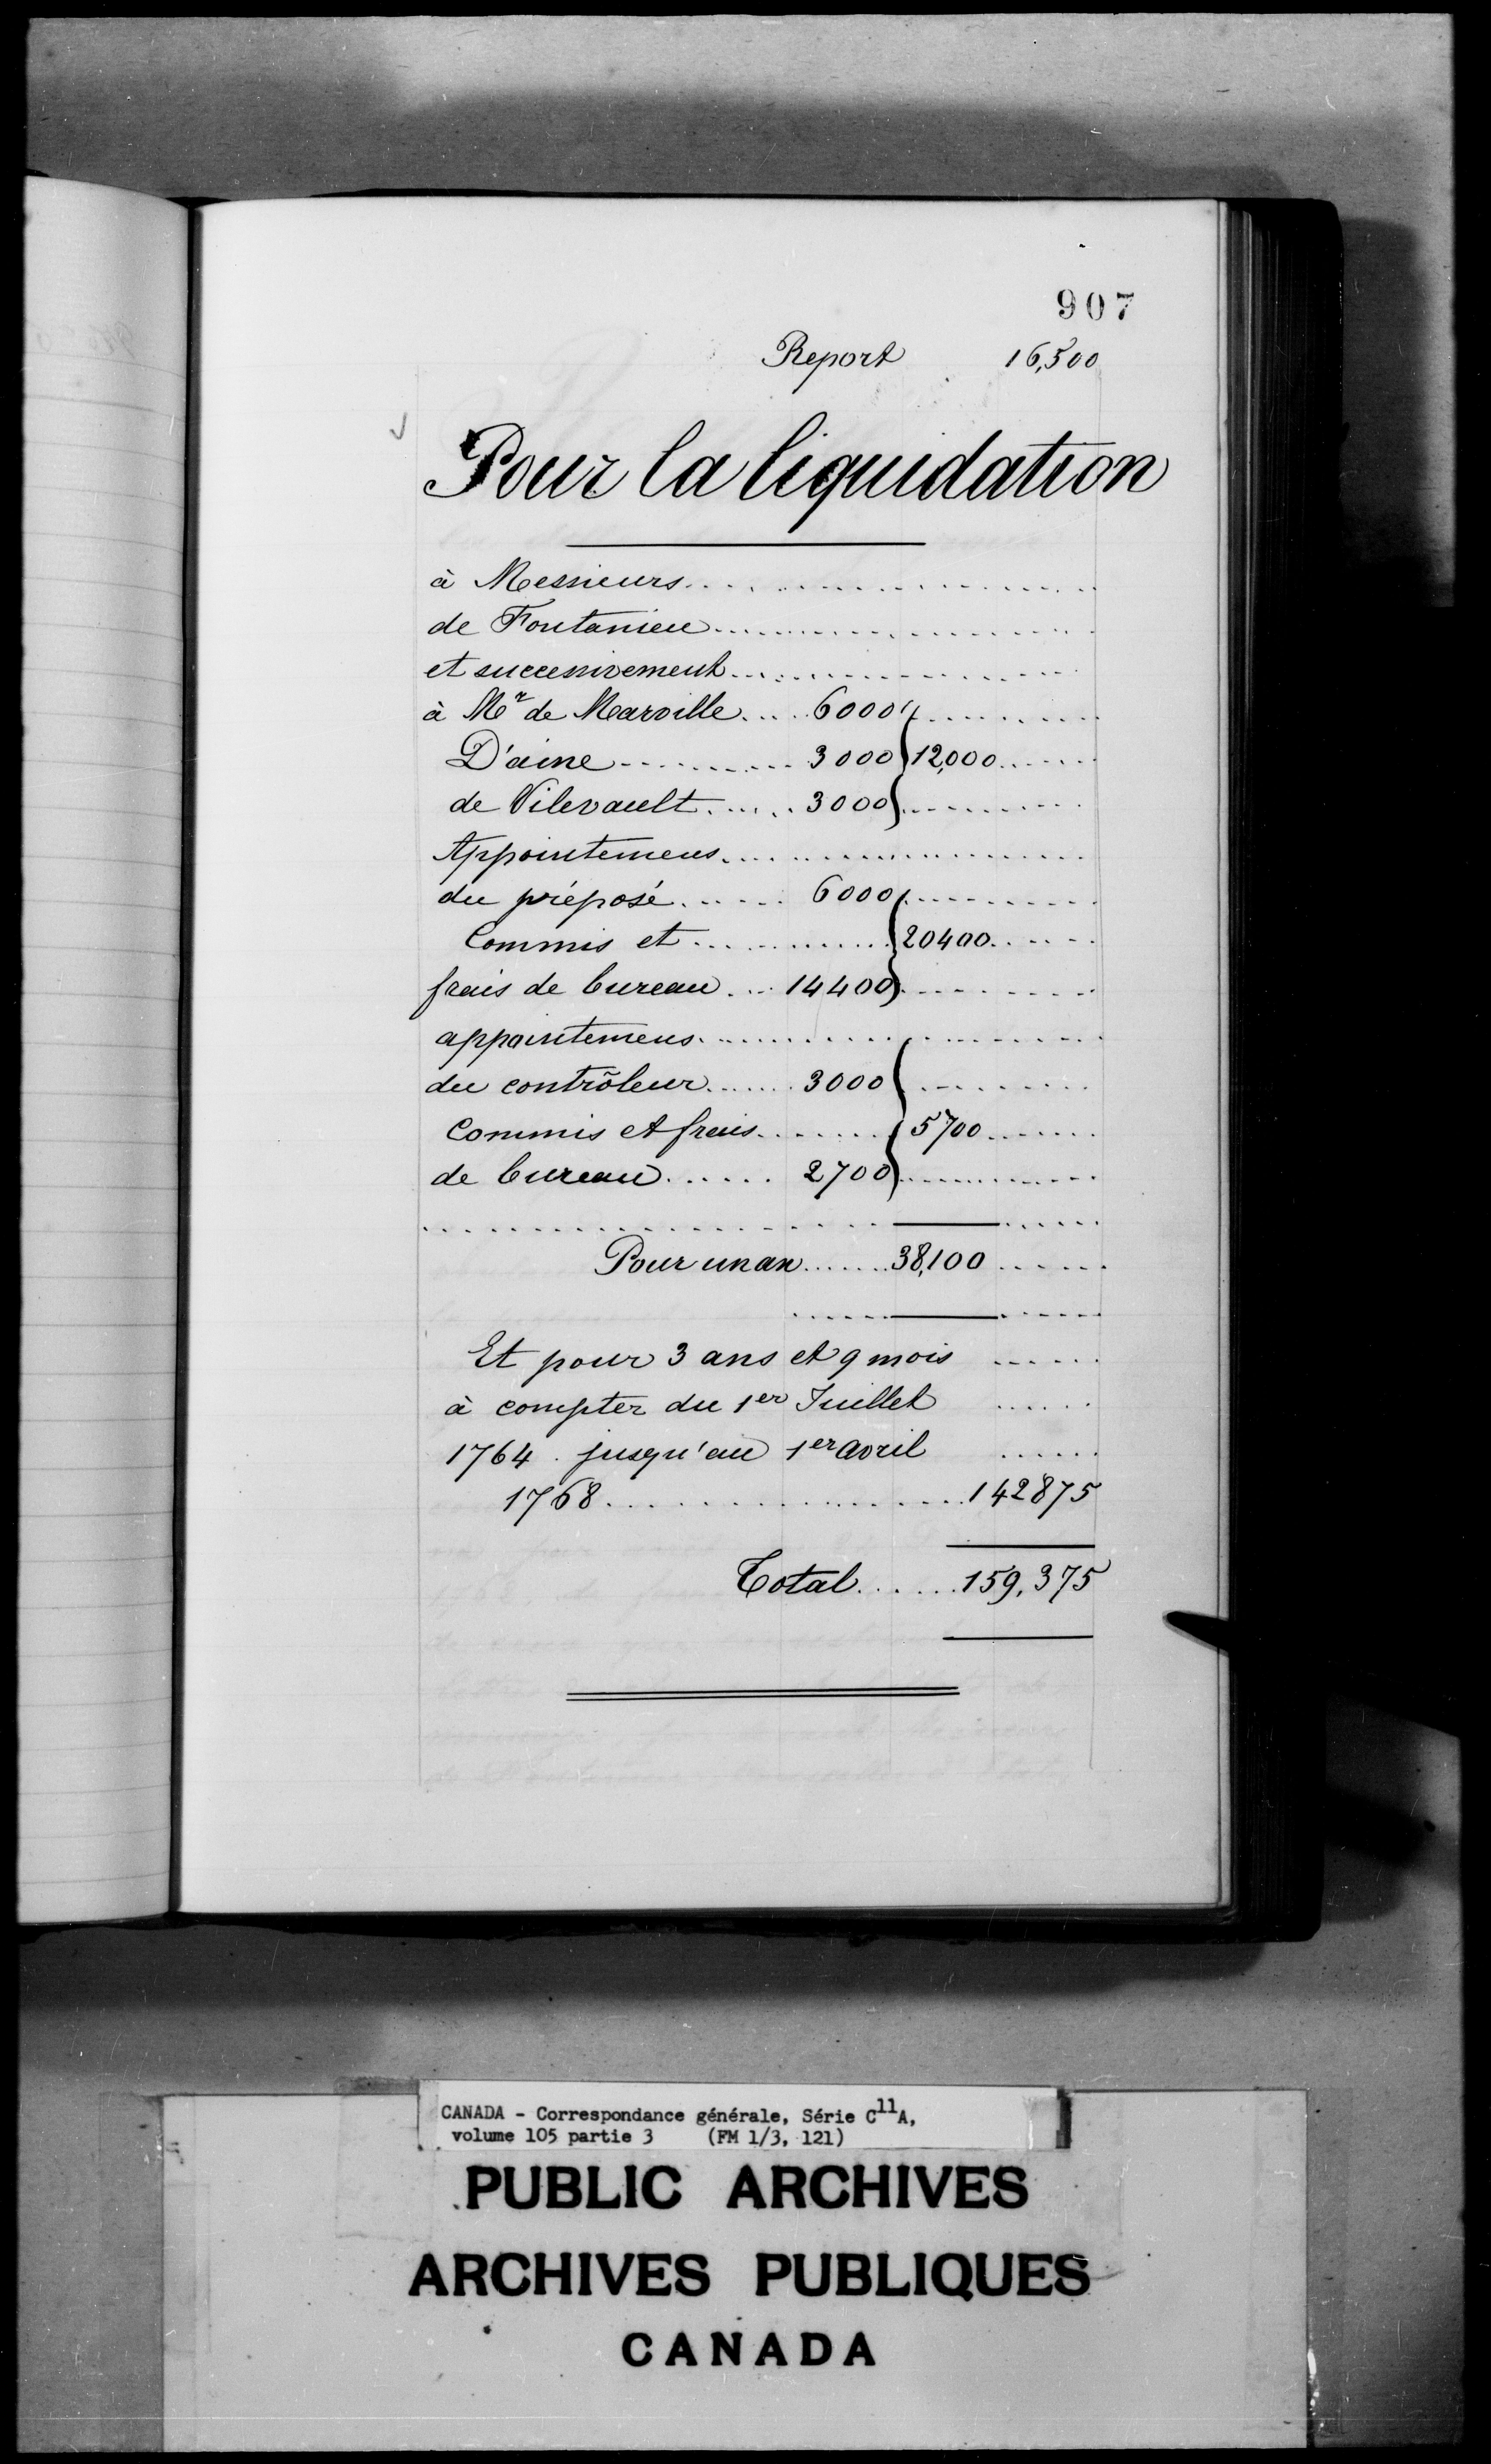 907
Report 16,500
Pour la liquidation
à Messieurs
de Fontanieu
et successivement
à Mr de Marville .... 6000
D'aine .......... 3000 } 12,000
de Vilevault ...... 3000
Appointemens
du préposé ...... 6000
Commis et .......... } 20400
frais de bureau ... 14400
appointemens
du contrôleur ...... 3000
Commis et frais ....... } 5700
de bureau ...... 2700
Pour un an ....... 38,100
Et pour 3 ans et 9 mois
à compter du 1er Juillet
1764 . jusqu'au 1er avril
1768 .................. 142875
Total ...... 159,375
CANADA - Correspondance générale, Série C11A,
volume 105 partie 3 (FM 1/3, 121)
PUBLIC ARCHIVES
ARCHIVES PUBLIQUES
CANADA